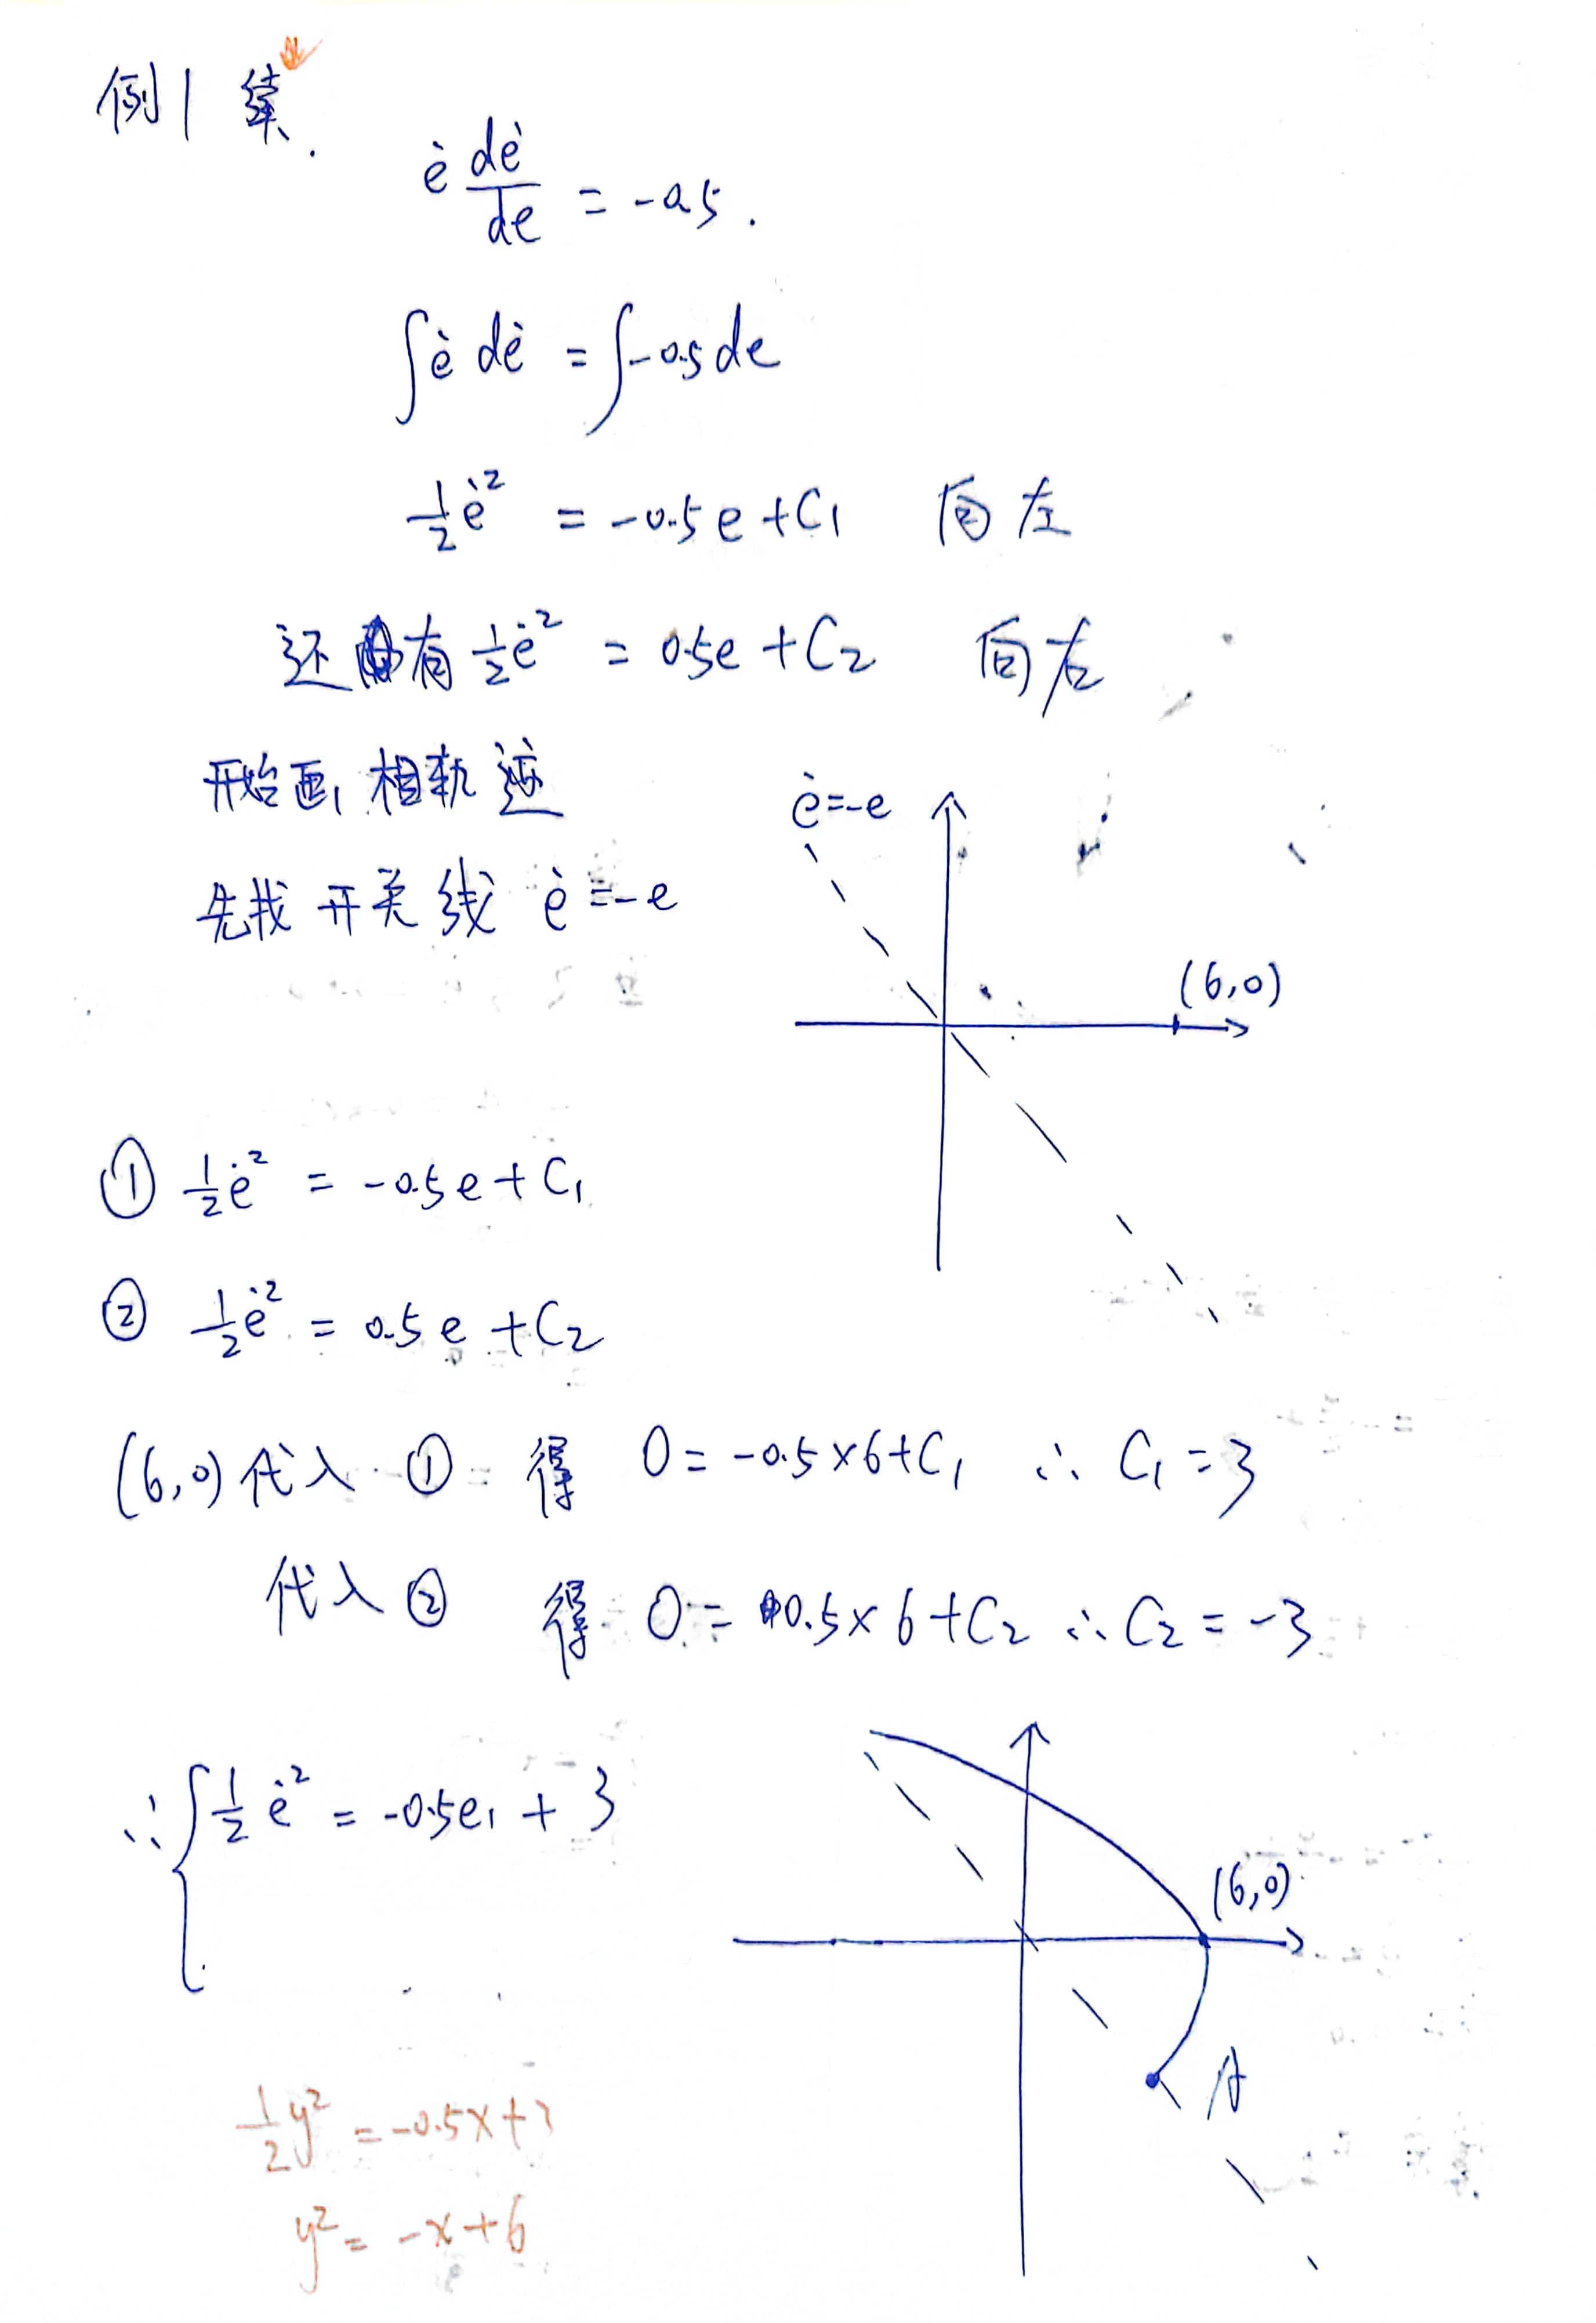 例1 续.
ė dė/de = -0.5.
∫ė dė = ∫-0.5de
½ė² = -0.5e+C₁ 向左
还有 ½ė² = 0.5e+C₂ 向左
开始画 相轨迹
先找 开关线 ė=-e
ė=-e
(6,0)
① ½ė² = -0.5e+C₁
② ½ė² = 0.5e+C₂
(6,0)代入 ① 得 0=-0.5×6+C₁ ∴ C₁=3
代入② 得 0=0.5×6+C₂ ∴ C₂=-3
∴ { ½ė² = -0.5e₁+3
(6,0)
A
½y² = -0.5x+3
y² = -x+6